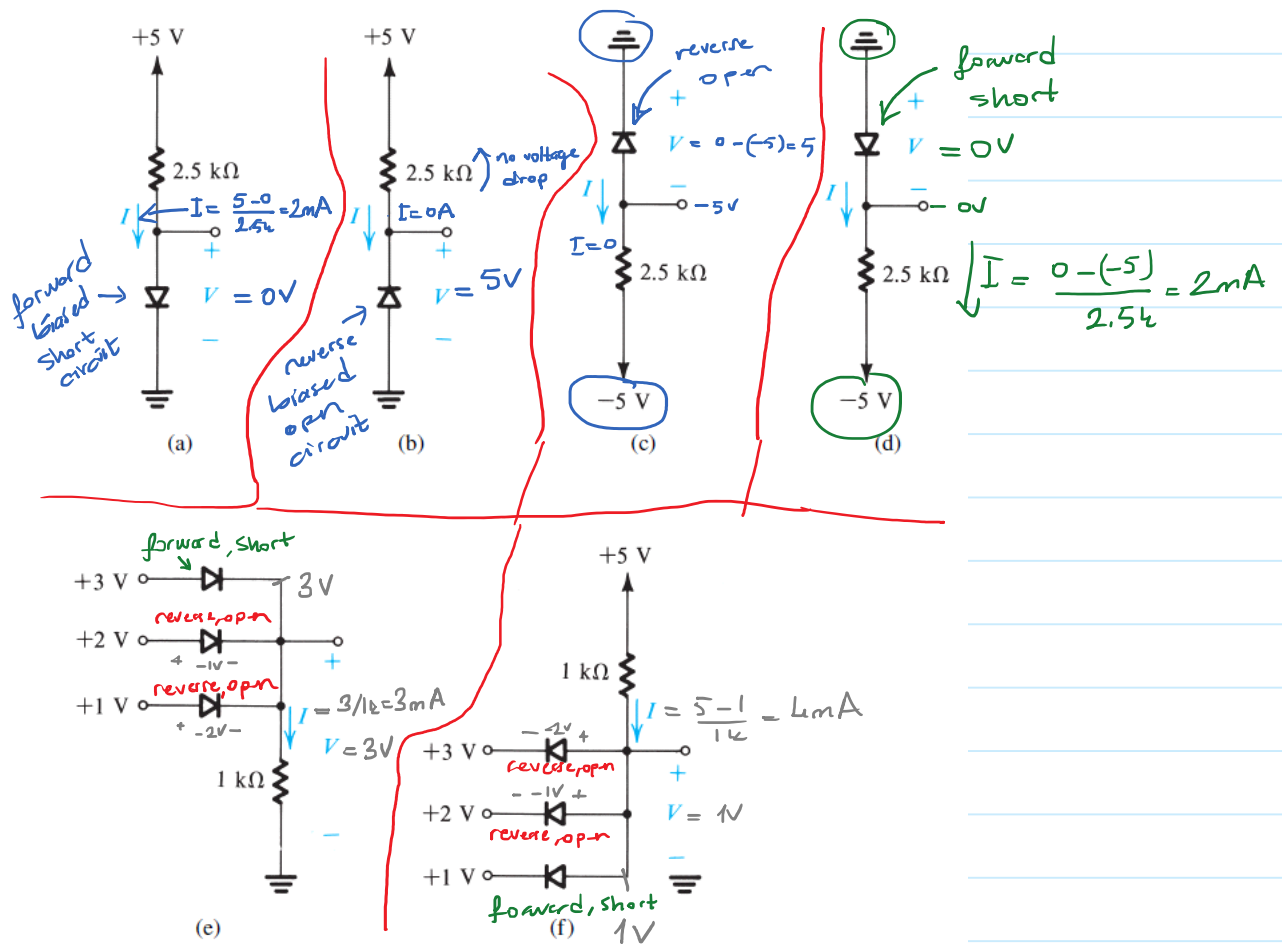 +5 V
2.5 kΩ
I
I = 5-0 / 2.5k = 2mA
+
forward biased short circuit
V = 0V
−
(a)
+5 V
2.5 kΩ
no voltage drop
I
I=0A
+
V = 5V
−
reverse biased open circuit
(b)
reverse open
+
V = 0-(-5)=5
−
I
-5V
I=0
2.5 kΩ
−5 V
(c)
forward short
+
V = 0V
−
I
0V
2.5 kΩ
I = 0-(-5) / 2.5k = 2mA
−5 V
(d)
forward, short
+3 V
3V
reverse, open
+2 V
+ -1V -
+
reverse, open
+1 V
+ -2V -
I = 3/1k=3mA
V = 3V
1 kΩ
−
(e)
+5 V
1 kΩ
I = 5-1 / 1k = 4mA
- -2V +
+3 V
reverse, open
+
- -1V +
+2 V
V = 1V
reverse, open
−
+1 V
forward, short
1V
(f)